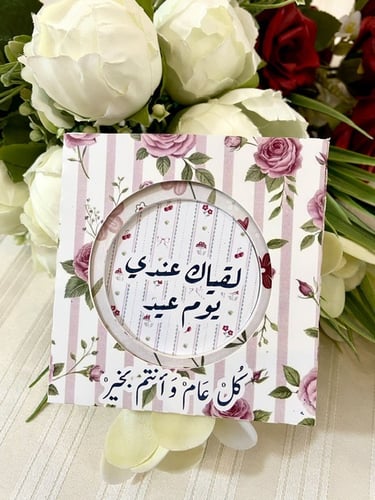 لقياك عندي
يوم عيد
كُلْ عَامْ وَأَنتمْ بخَيرْ